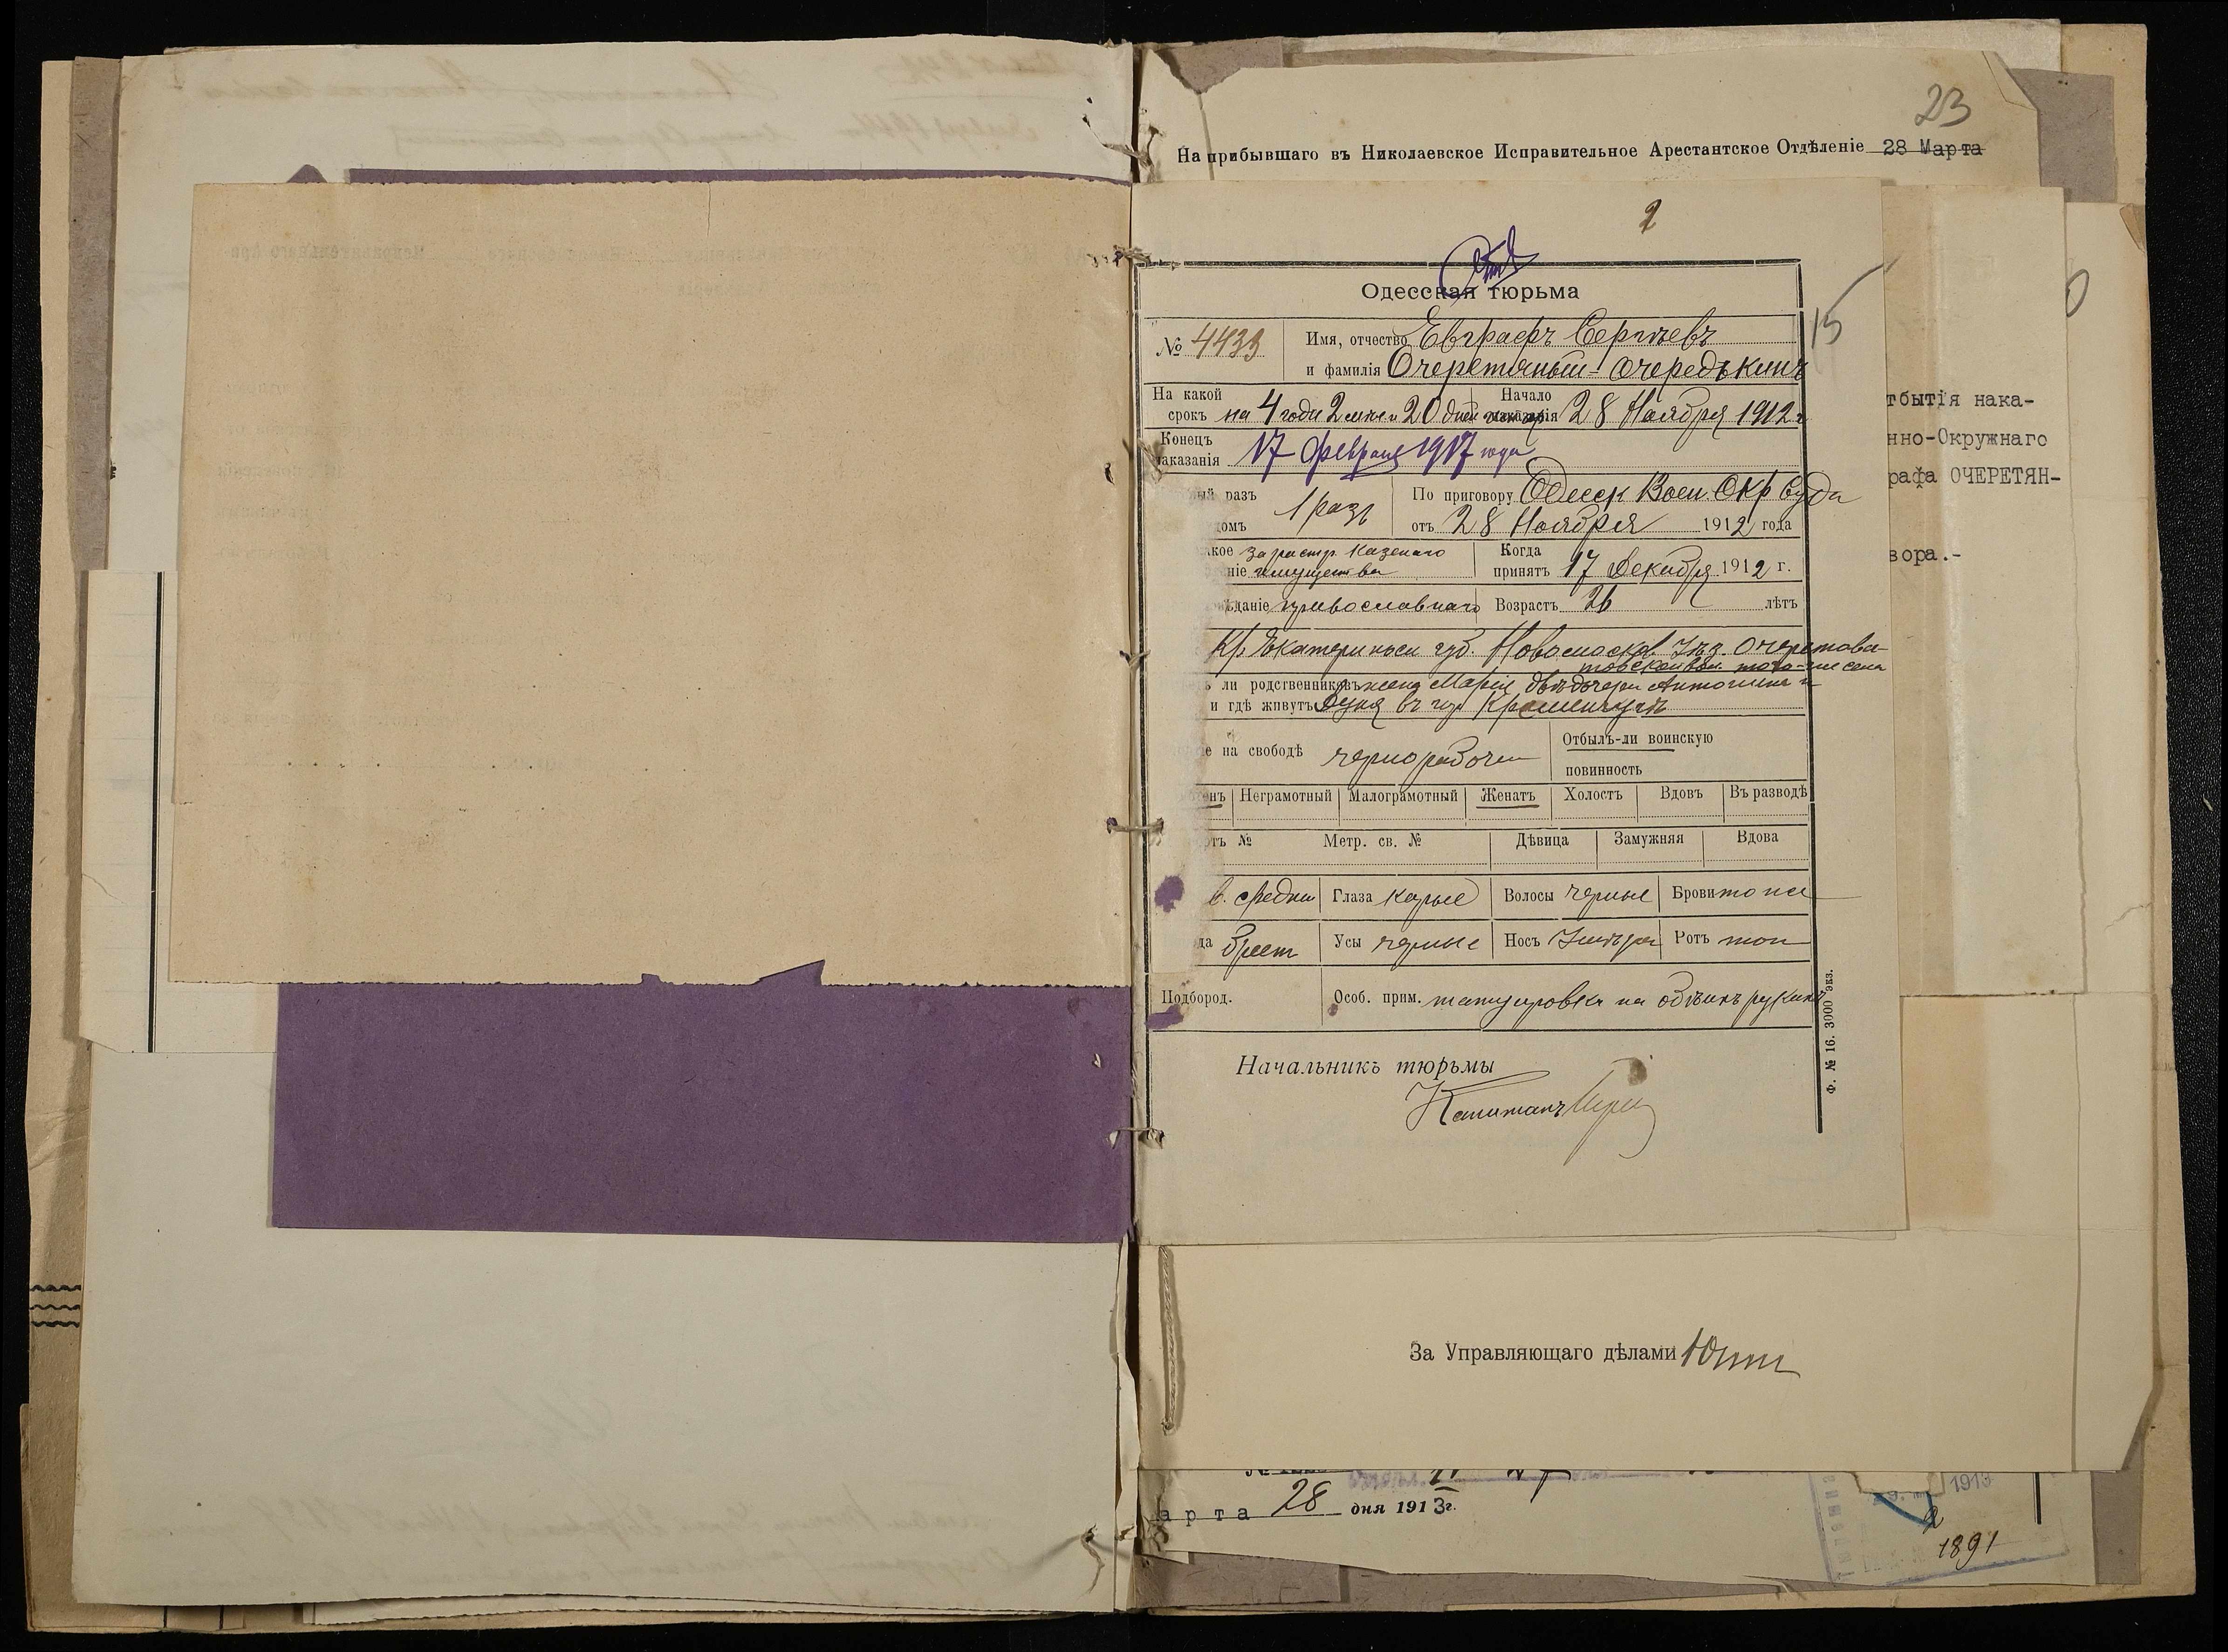 23
На прибывшаго въ Николаевское Исправительное Арестантское Отдѣленіе 28 Марта
2
Одесская тюрьма
15
№ 4433 Имя, отчество Евграфъ Сергѣевъ
и фамилія Очеретяный-Очередькинъ
На какой срокъ на 4 года 2 мѣс и 20 дней Начало наказанія 28 Ноября 1912 г
Конецъ наказанія 17 Февраля 1917 года
ый разъ домъ 1 разъ По приговору Одесск Воен. Окр Суда
отъ 28 Ноября 1912 года
кое за растр. казенаго
ніе имущества
Когда принятъ 17 Декабря 1912 г.
ѣданіе православнаго Возрастъ 26 лѣтъ
Кр. Екатериносл губ. Новомосков. уѣз. Очеретова-
товской вол. того-же села
ли родственниковъ жена Марія, двѣ дочери Антонина и
и гдѣ живутъ въ гор Кременчугѣ
е на свободѣ чернорабочи
Отбылъ-ли воинскую
повинность
енъ Неграмотный Малограмотный Женатъ Холостъ Вдовъ Въ разводѣ
ртъ № Метр. св. № Дѣвица Замужняя Вдова
в. средни Глаза карые Волосы черные Брови тоже
да брѣет Усы черные Носъ умѣрен Ротъ тоже
Подбород. Особ. прим. татуировка на обѣихъ рукахъ
Ф. № 16. 3000 экз.
Начальникъ тюрьмы
Капитанъ
тбытія нака-
нно-Окружнаго
рафа ОЧЕРЕТЯН-
вора.-
За Управляющаго дѣлами
арта 28 дня 1913 г.
1913
2
1891